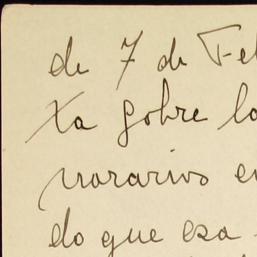 de 7 de Fe
ta sobre lo
norarios e
do que esa